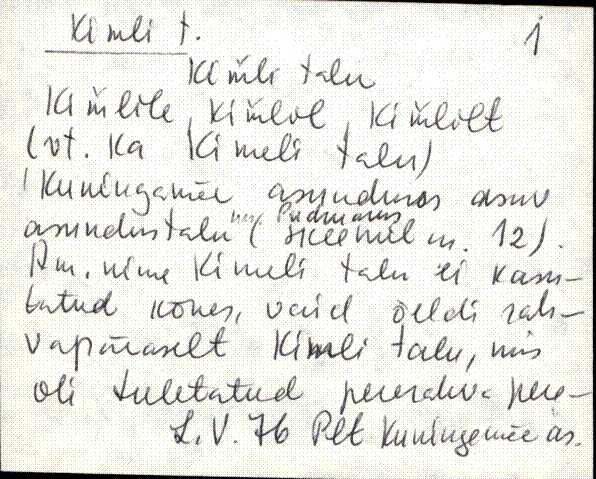 Kimli t. 1
Kim̆li talu
Kim̆lile, Kim̆lil, Kim̆lilt
(vt. ka Kimeli talu)
Kuningamäe asunduses asuv
asundustalu (skeemil n. 12).
Am. nime Kimeli talu ei kasu-
tatud kõnes, vaid öeldi rah-
vapäraselt Kimli talu, mis
oli tuletatud pererahva pere-
L.V. 76 Plt Kuningamäe as.